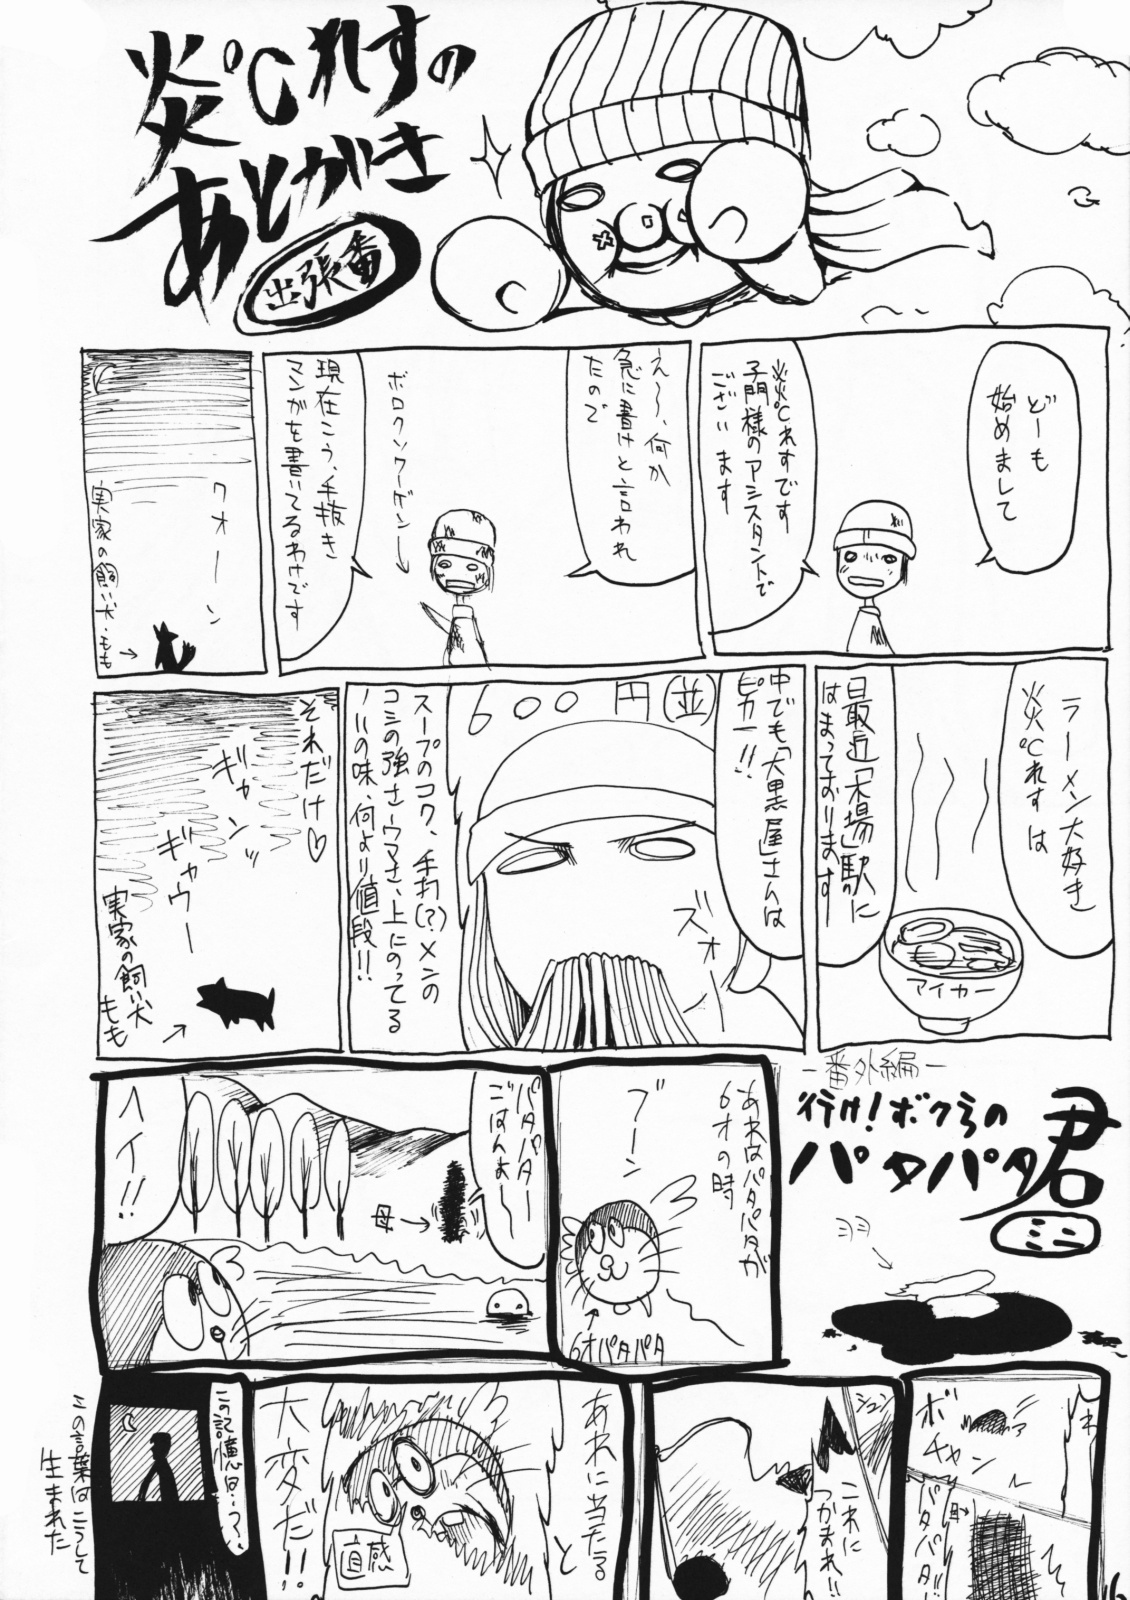 炎℃れすの
あとがき
出張番
どーも
始めまして
炎℃れすです
子門様のアシスタントで
ございます
え〜、何か
急に書けと言われ
たので
ボロクソワーゲン→
現在こう、手抜き
マンガを書いてるわけです
ワオーン
実家の飼い犬・もも→
ラーメン大好き
炎℃れすは
最近「大場」駅に
はまっております
アイカー
中でも「大黒屋」さんは
ピカ一!!
600円(並)
ズオーッ
スープのコク、手打(?)メンの
コシの強さーウマさ、上にのってる
ノリの味、何より値段!!
それだけ♡
ギャンッ
ギャウー
実家の飼い犬
もも→
-番外編-
行け!ボクらの
パタパタ君
ミニ
ヨミ
あれはパタパタが
6才の時
ブーン
6才パタパタ
パタパター
ごはんよ〜
母→
ヘイ!!
ボチャン
パタパタ!!
シュッ
これに
つかまれ!!
あれに当たると
大変だ!!
直感
この記憶は…?
この言葉はこうして
生まれた